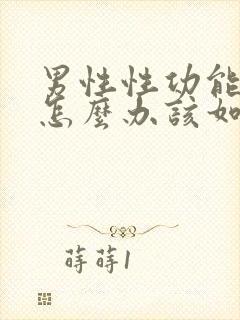 男性性功能
怎麼办該如
蒔蒔1